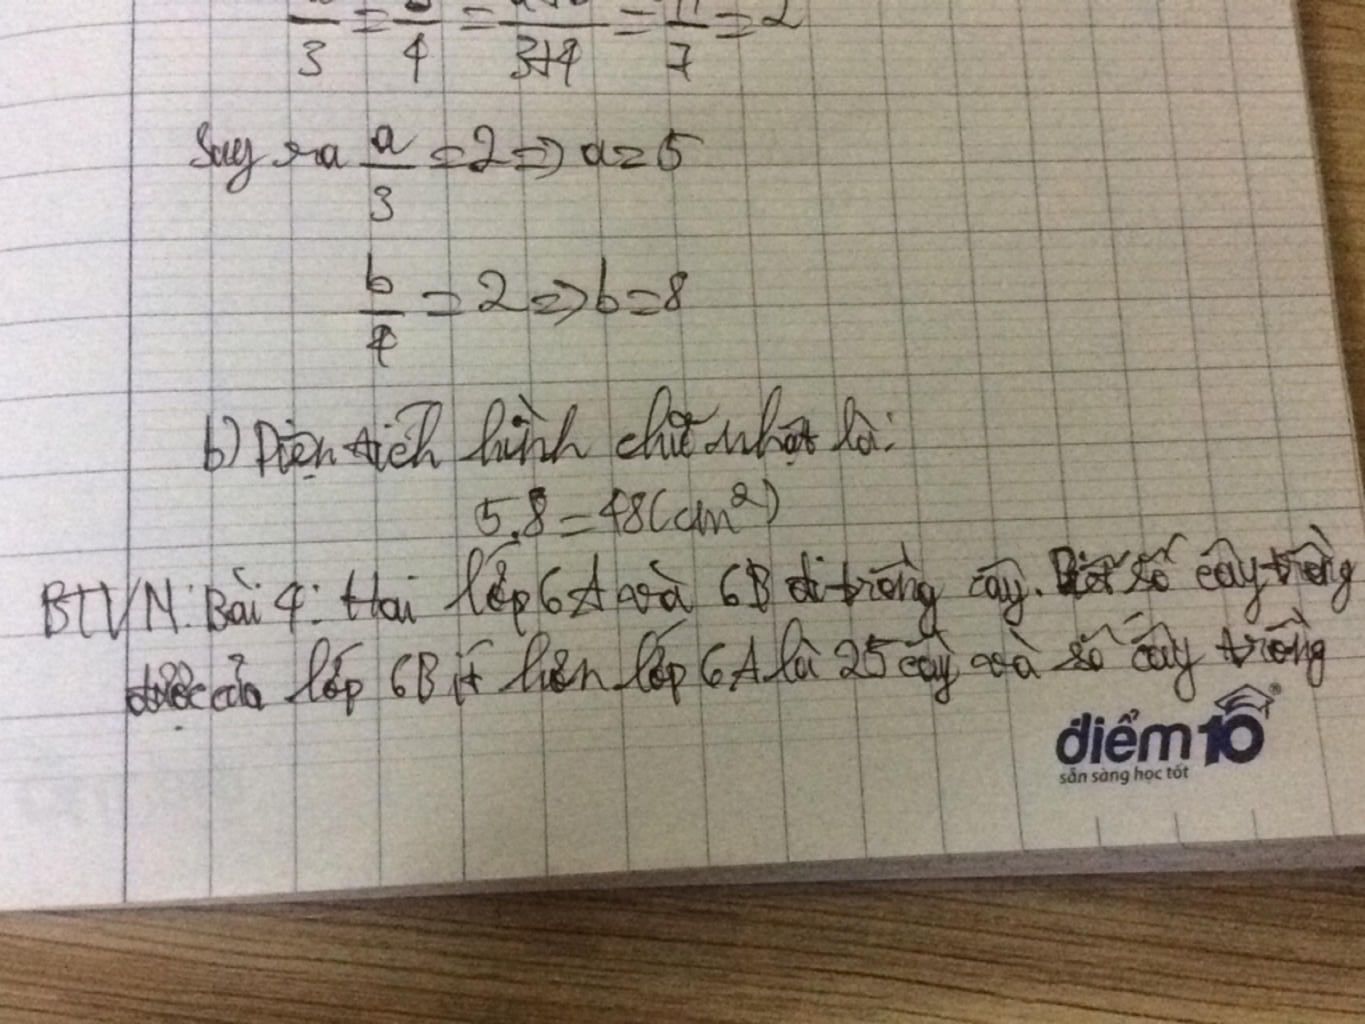 3 = 4 = 3+4 = 7 = 2
Suy ra a/3 = 2 => a = 5
b/4 = 2 => b = 8
b) Diện tích hình chữ nhật là:
5.8 = 48 (cm²)
BTVN: Bài 4: Hai lớp 6A và 6B đi trồng cây. Biết số cây trồng
được của lớp 6B ít hơn lớp 6A là 25 cây và số cây trồng
điểm 10®
sẵn sàng học tốt